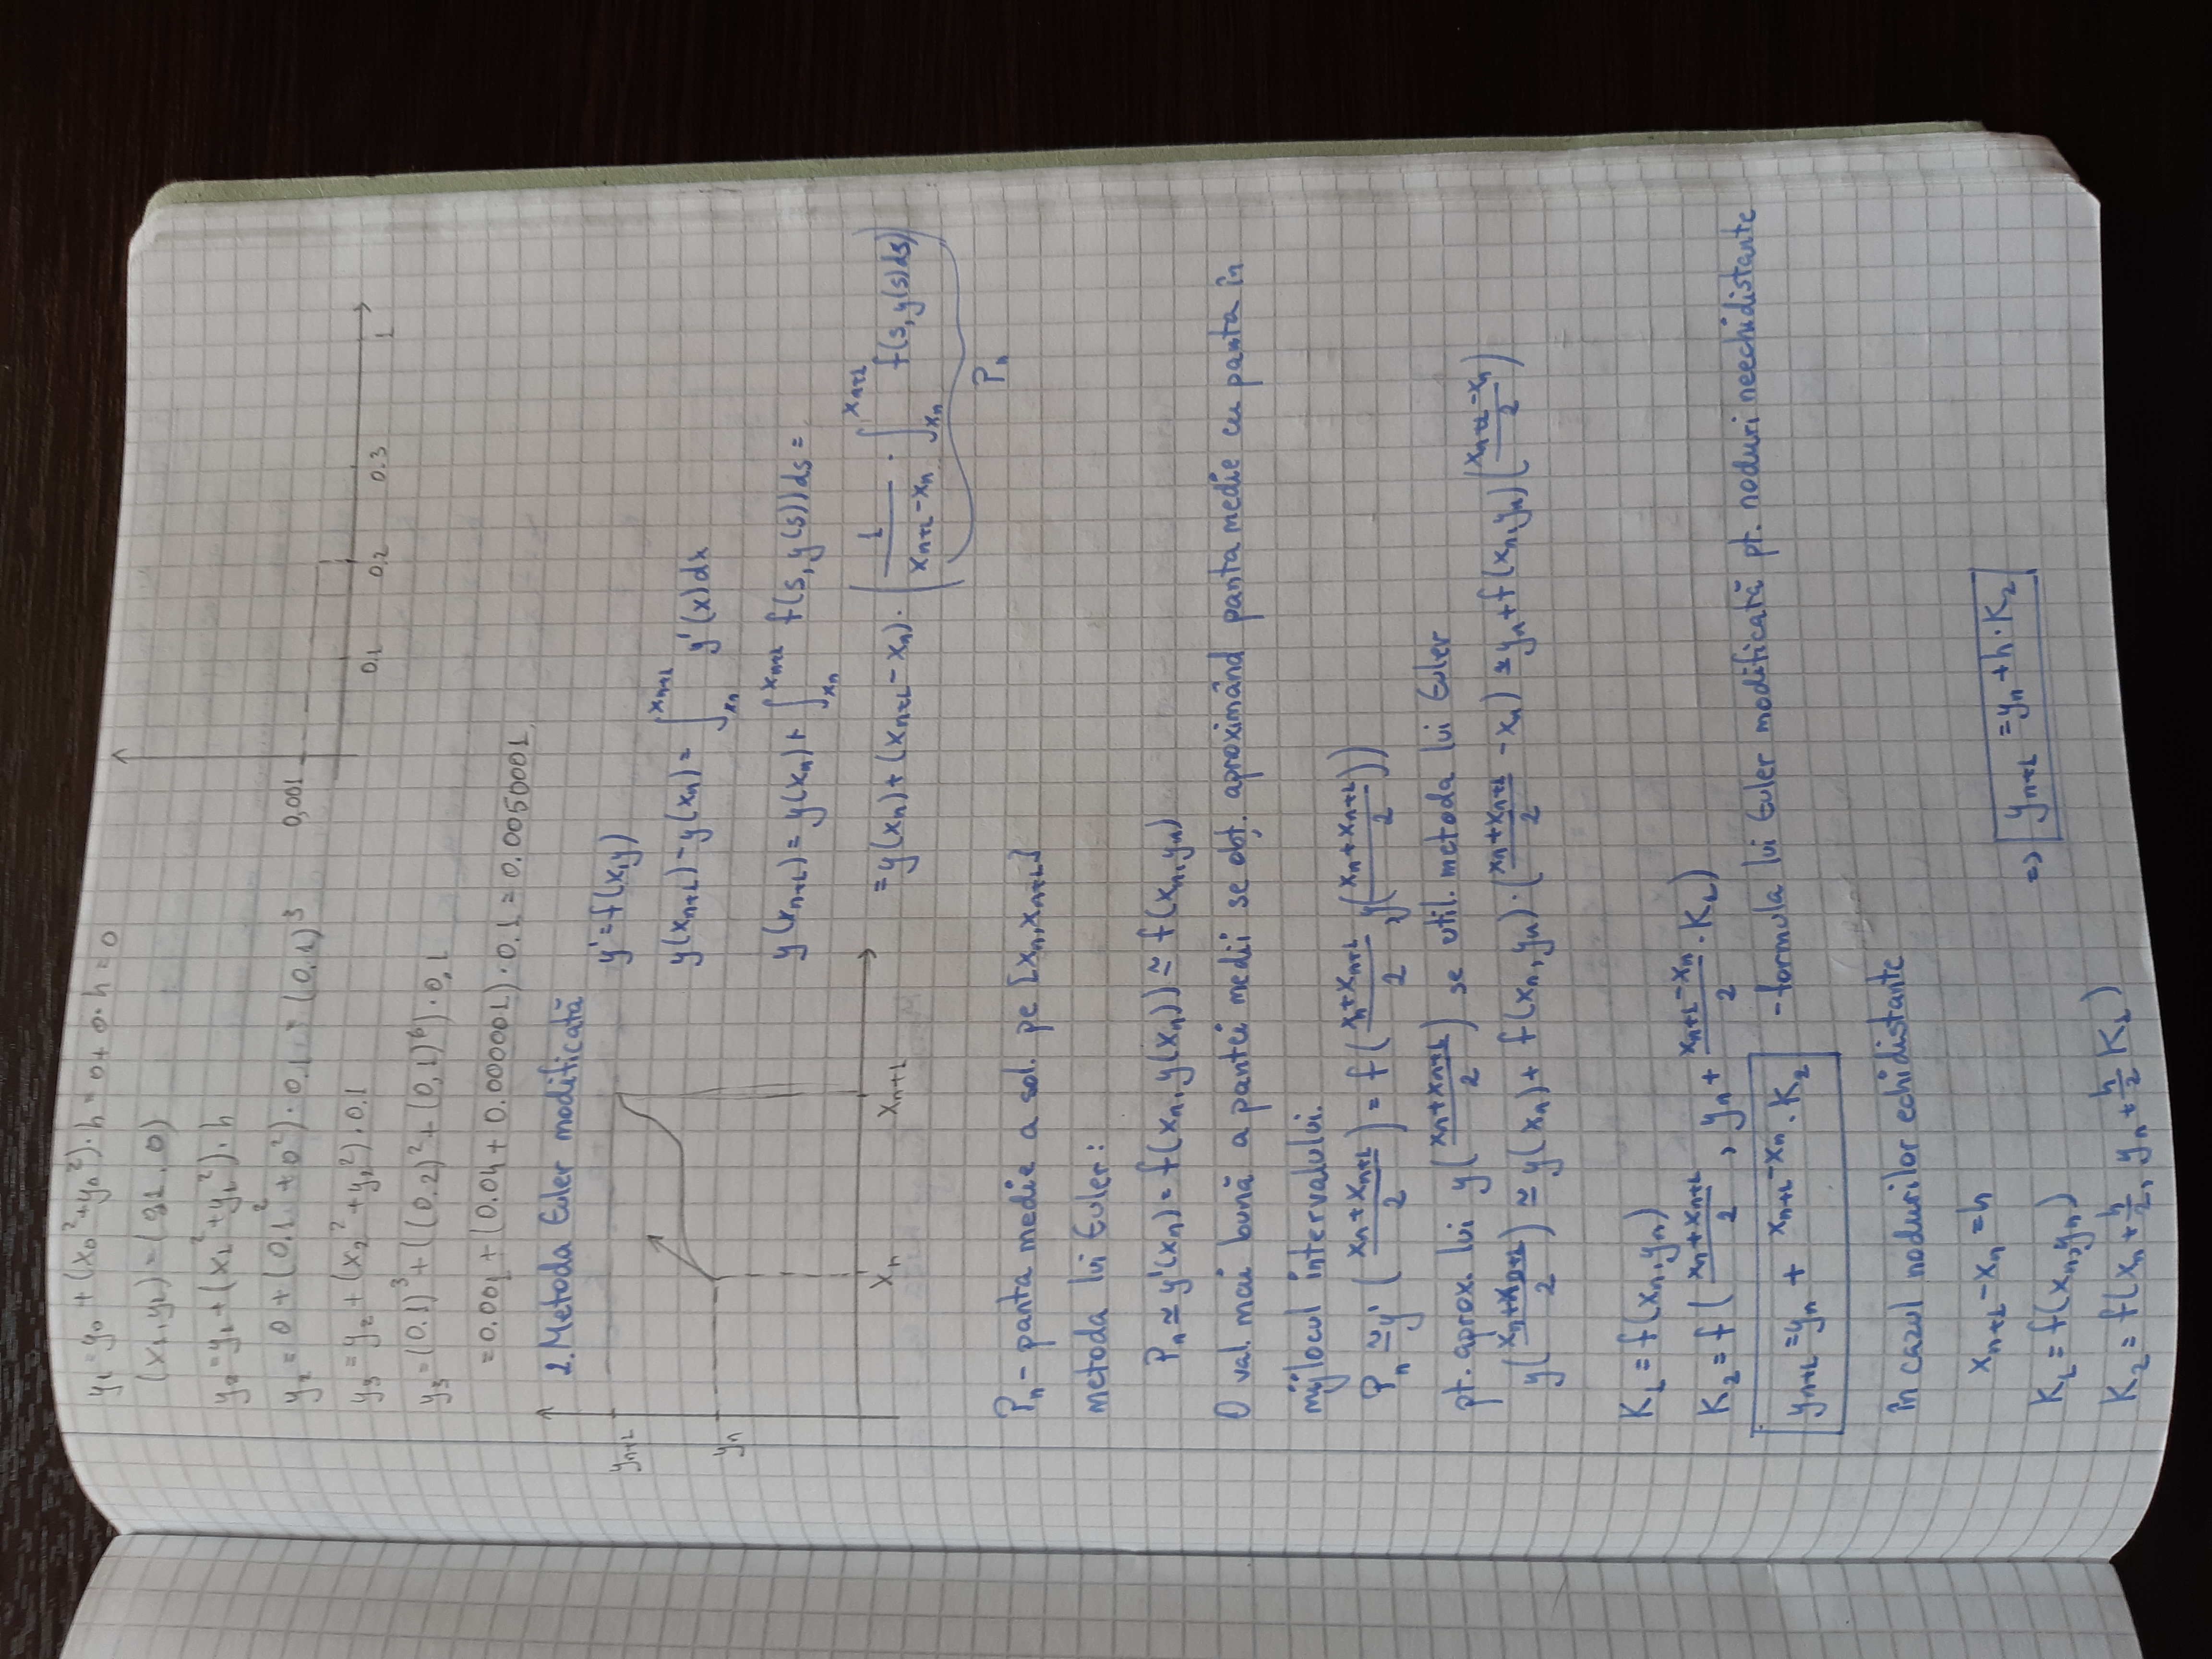 y₁ = y₀ + (x₀² + y₀²)·h = 0 + 0·h = 0
(x₁, y₁) = (0.1, 0)
y₂ = y₁ + (x₁² + y₁²)·h
y₂ = 0 + (0.1² + 0²)·0.1 = (0.1)³
y₃ = y₂ + (x₂² + y₂²)·0.1
y₃ = (0.1)³ + ((0.2)² + (0,1)⁶)·0,1
= 0.001 + (0.04 + 0.000001)·0.1 = 0.0050001
0,001
0.1 0.2 0.3 1
2. Metoda Euler modificată
yₙ₊₁
yₙ
xₙ xₙ₊₁
y' = f(x,y)
y(xₙ₊₁) - y(xₙ) = ∫_{xₙ}^{xₙ₊₁} y'(x)dx
y(xₙ₊₁) = y(xₙ) + ∫_{xₙ}^{xₙ₊₁} f(s, y(s))ds =
= y(xₙ) + (xₙ₊₁ - xₙ)·(1/(xₙ₊₁ - xₙ) · ∫_{xₙ}^{xₙ₊₁} f(s, y(s)ds)
Pₙ
Pₙ - panta medie a sol. pe [xₙ, xₙ₊₁]
metoda lui Euler:
Pₙ ≃ y'(xₙ) = f(xₙ, y(xₙ)) ≃ f(xₙ, yₙ)
O val. mai bună a pantei medii se obț. aproximând panta medie cu panta în
mijlocul intervalului.
Pₙ ≅ y'((xₙ + xₙ₊₁)/2) = f((xₙ + xₙ₊₁)/2, y((xₙ + xₙ₊₁)/2))
pt. aprox. lui y((xₙ + xₙ₊₁)/2) se util. metoda lui Euler
y((xₙ + xₙ₊₁)/2) ≅ y(xₙ) + f(xₙ, yₙ)·((xₙ + xₙ₊₁)/2 - xₙ) ≃ yₙ + f(xₙ, yₙ)((xₙ₊₁ - xₙ)/2)
K₁ = f(xₙ, yₙ)
K₂ = f((xₙ + xₙ₊₁)/2, yₙ + (xₙ₊₁ - xₙ)/2 · K₁)
yₙ₊₁ = yₙ + xₙ₊₁ - xₙ · K₂ - formula lui Euler modificată pt. noduri neechidistante
în cazul nodurilor echidistante
xₙ₊₁ - xₙ = h
K₁ = f(xₙ, yₙ)
=> yₙ₊₁ = yₙ + h·K₂
K₂ = f(xₙ + h/2, yₙ + h/2 K₁)